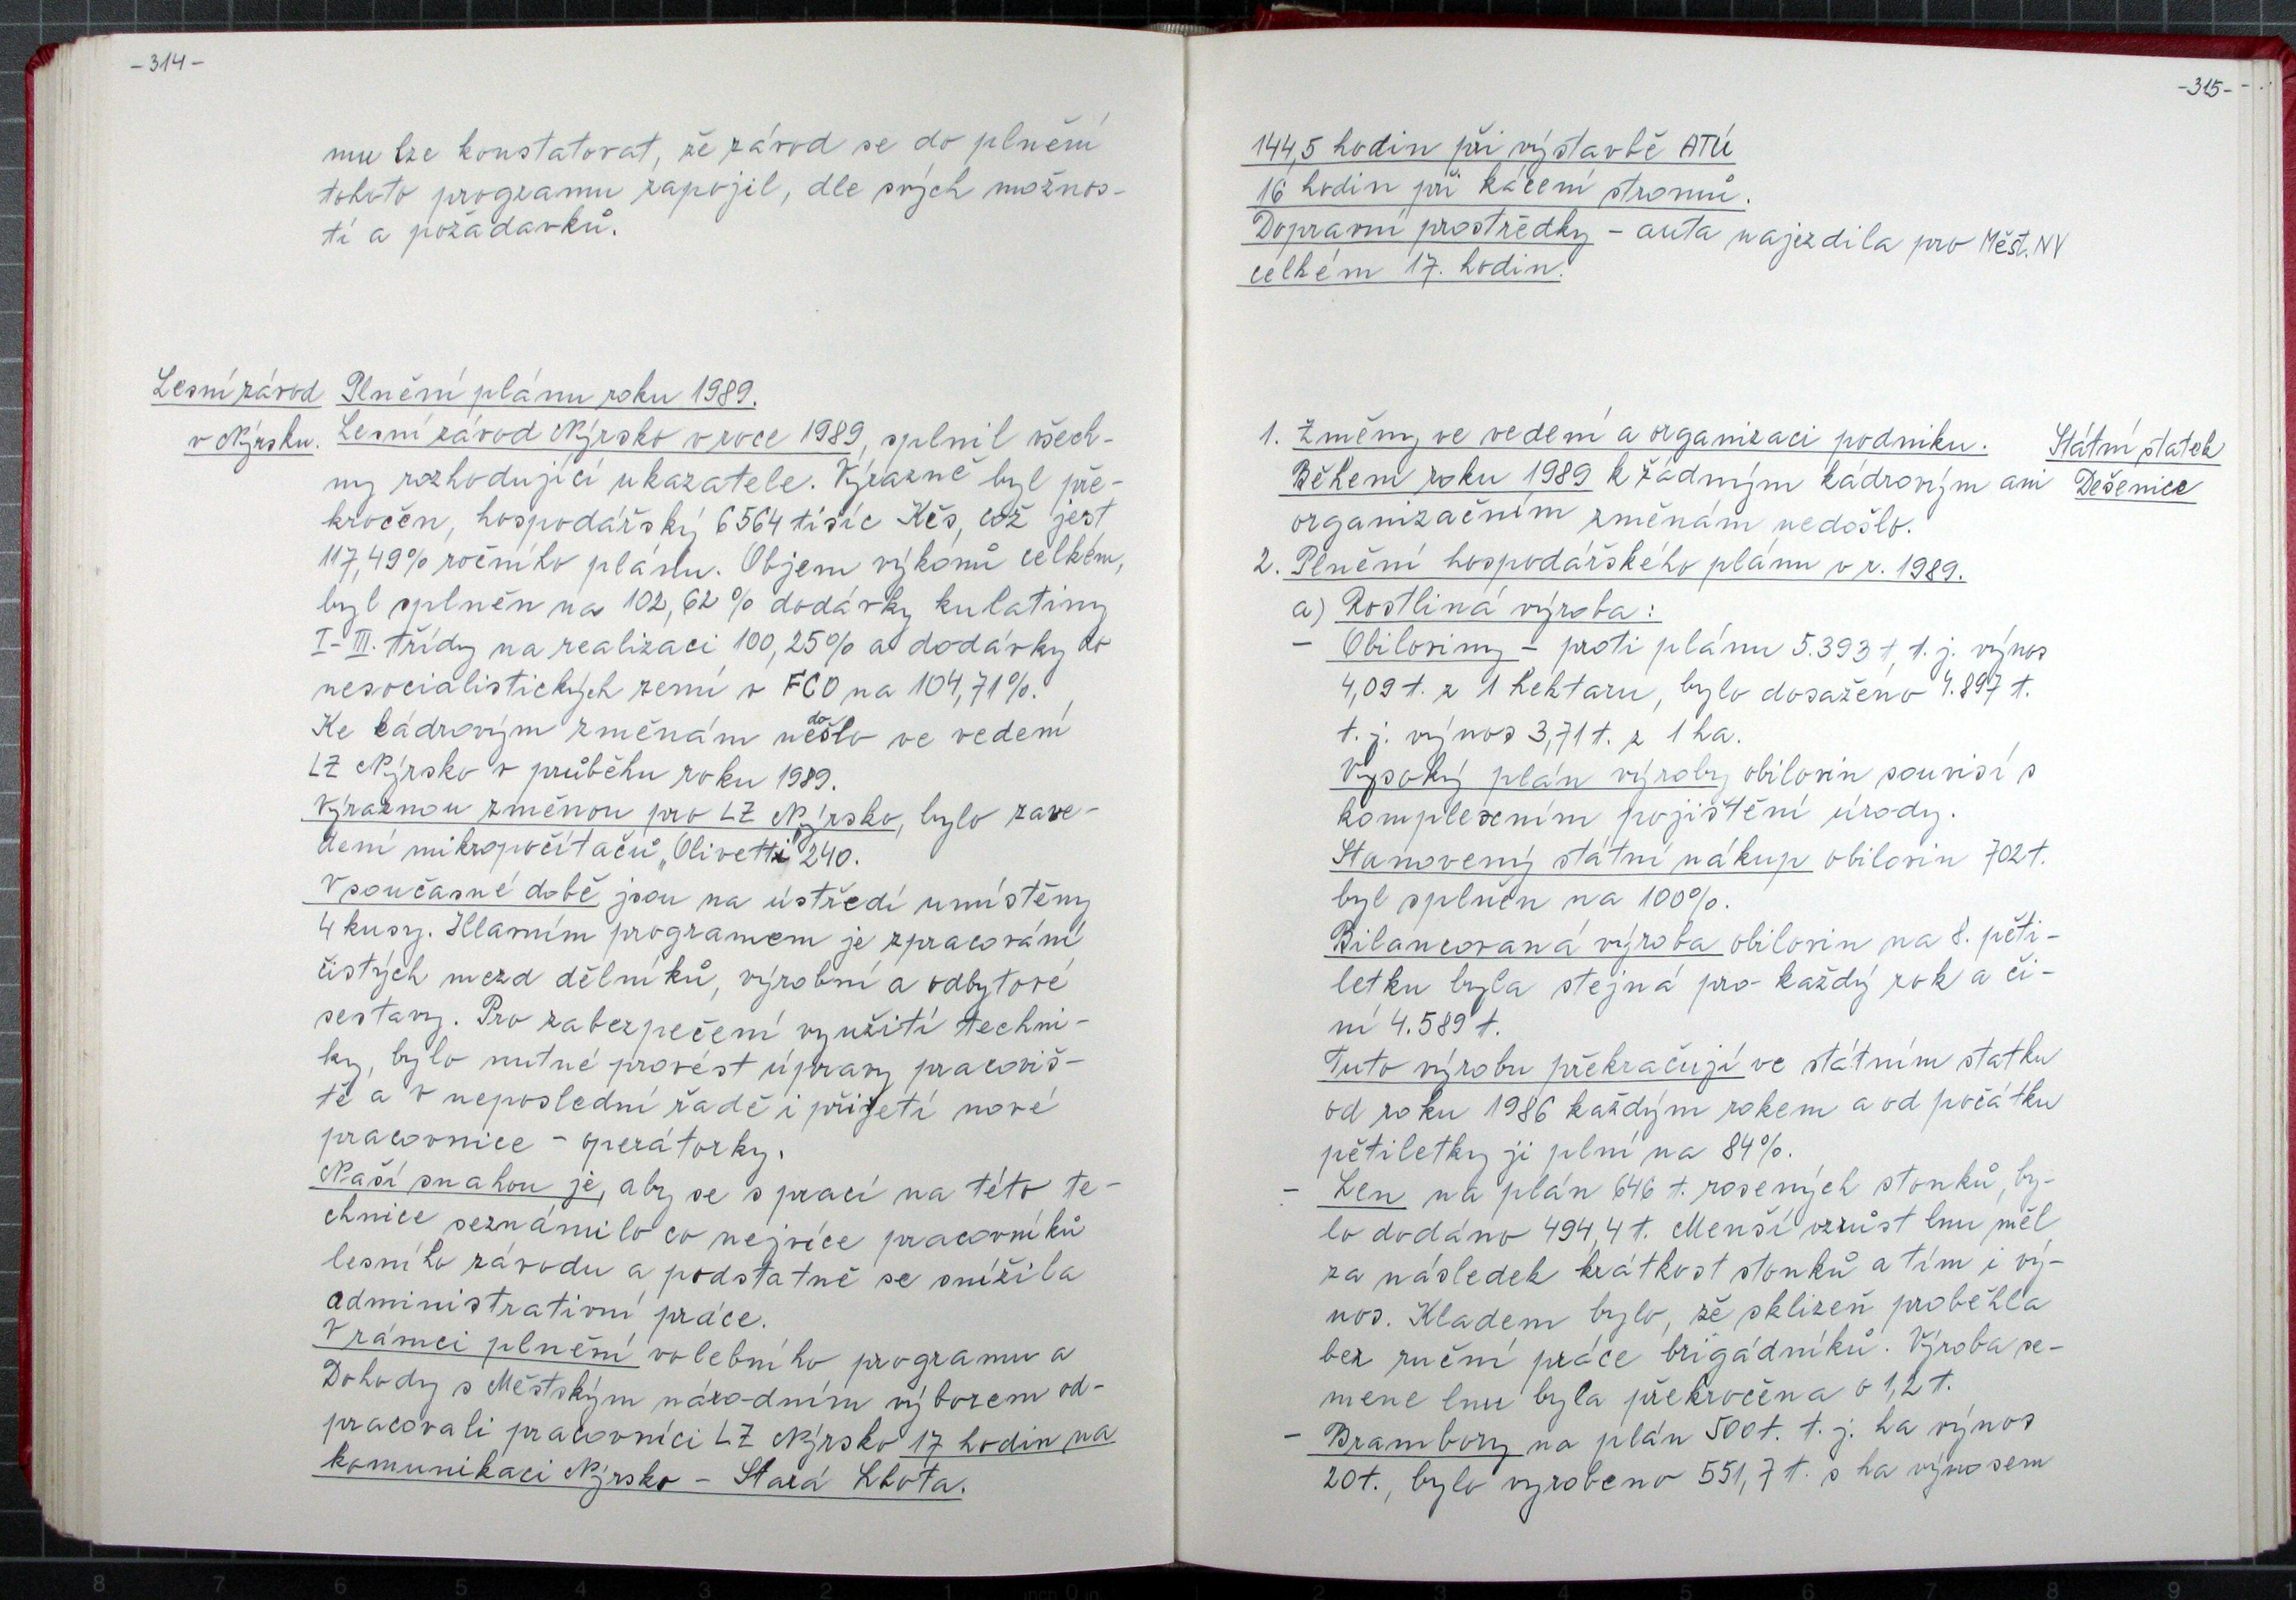 -314-
mu lze konstatovat, že závod se do plnění
tohoto programu zapojil, dle svých možnos-
tí a požadavků.
Lesní závod
v Nýrsku.
Plnění plánu roku 1989.
Lesní závod Nýrsko v roce 1989, splnil všech-
ny rozhodující ukazatele. Výrazně byl pře-
kročěn, hospodářský 6564 tisíc Kčs, což jest
117,49% ročního plánu. Objem výkonů celkém,
byl splněn na 102,62% dodávky kulatiny
I-III. třídy na realizaci 100,25% a dodávky do
nesocialistických zemí v FCO na 104,71%.
Ke kádrovým změnám nedošlo ve vedení
LZ Nýrsko v průběhu roku 1989.
Výraznou změnou pro LZ Nýrsko, bylo zave-
dení mikropočítačů „Olivetti" 240.
V současné době jsou na ústředí umístěny
4 kusy. Hlavním programem je zpracování
čistých mezd dělníků, výrobní a odbytové
sestavy. Pro zabezpečení využití techni-
ky, bylo nutné provést úpravy pracoviš-
tě a v neposlední řadě i přijetí nové
pracovnice - operátorky.
Naší snahou je, aby se s prací na této te-
chnice seznámilo co nejvíce pracovníků
lesního závodu a podstatně se snížila
administrativní práce.
V rámci plnění volebního programu a
Dohody s Městským národním výborem od-
pracovali pracovníci LZ Nýrsko 17 hodin na
komunikaci Nýrsko - Stará Lhota.
-315-
144,5 hodin při výstavbě ATÚ
16 hodin při kácení stromů.
Dopravní prostředky - auta najezdila pro Měst. NV
celkém 17. hodin.
Státní statek
Dešenice
1. Změny ve vedení a organizaci podniku.
Během roku 1989 k žádným kádrovým ani
organizačním změnám nedošlo.
2. Plnění hospodářského plánu v r. 1989.
a) Rostliná výroba:
- Obiloviny - proti plánu 5.393 t, t. j. výnos
4,09 t. z 1 hektaru, bylo dosaženo 4.897 t.
t. j. výnos 3,71 t. z 1 ha.
Vysoký plán výroby obilovin souvisí s
komplexním pojištění úrody.
Stanovený státní nákup obilovin 702 t.
byl splněn na 100%.
Bilancovaná výroba obilovin na 8. pěti-
letku byla stejná pro každý rok a či-
ní 4.589 t.
Tuto výrobu překračují ve státním statku
od roku 1986 každým rokem a od počátku
pětiletky ji plní na 84%.
- Len na plán 646 t. rosených stonků, by-
lo dodáno 494,4 t. Menší vzrůst lnu měl
za následek krátkost stonků a tím i vý-
nos. Kladem bylo, že sklizeň proběhla
bez ruční práce brigádníků. Výroba se-
mene lnu byla překročena o 1,2 t.
- Brambory na plán 500 t. t. j. ha výnos
20 t., bylo vyrobeno 551,7 t. s ha výnosem